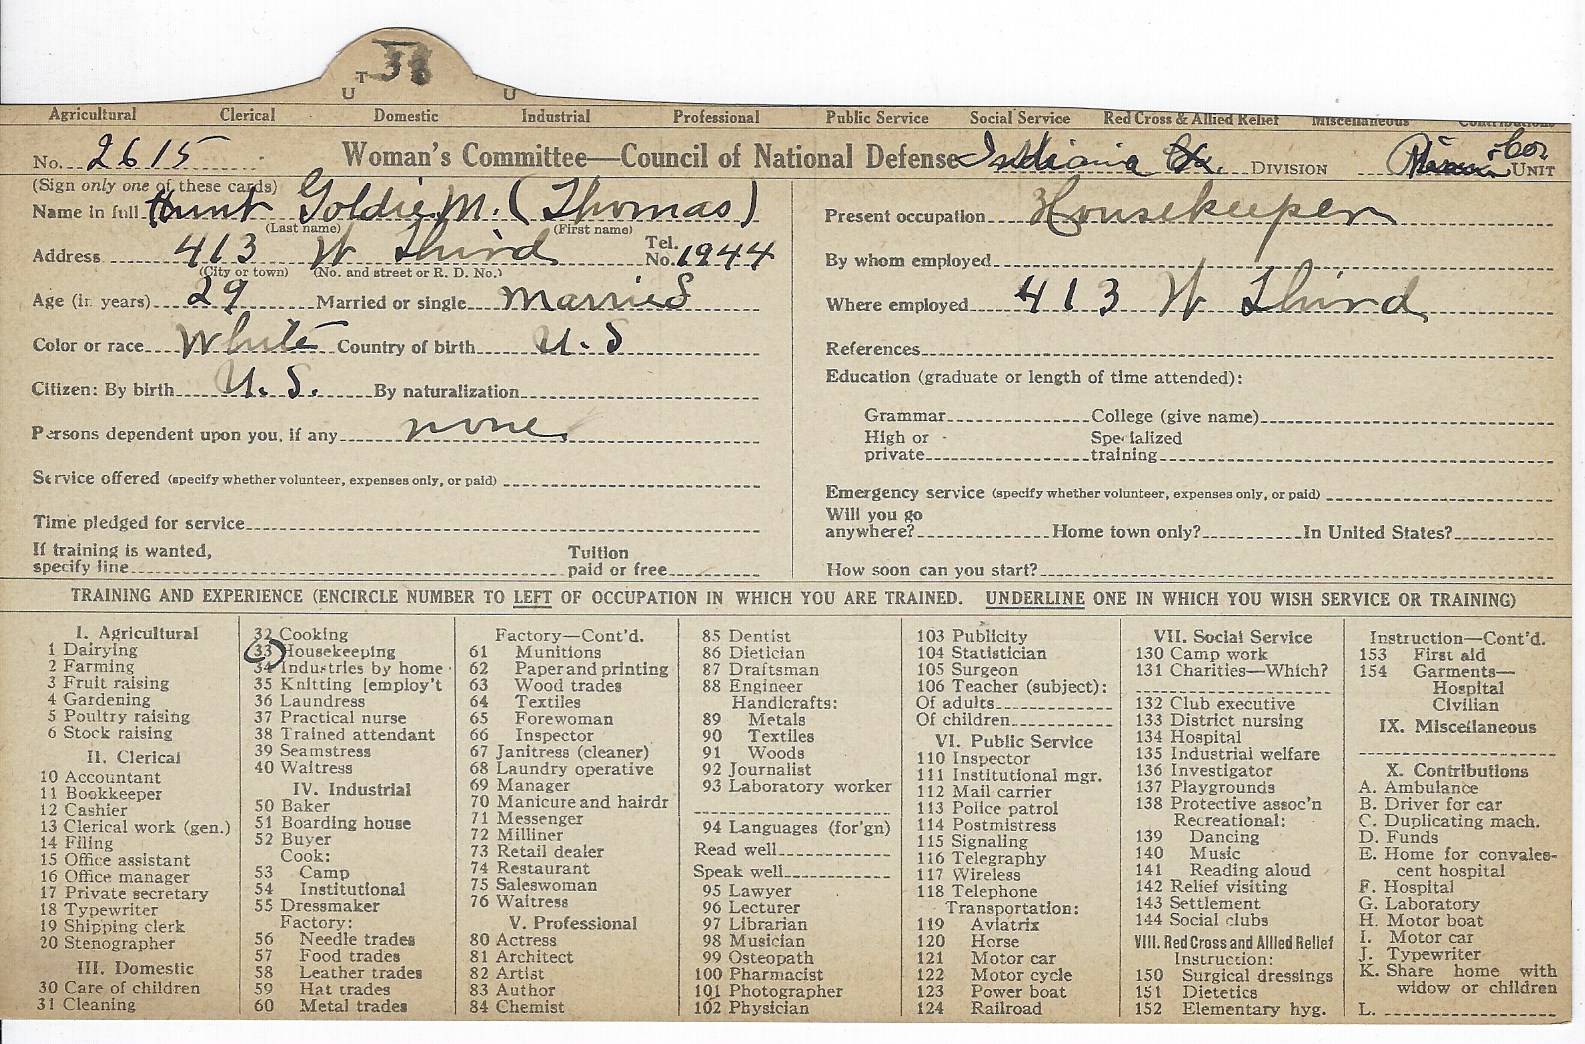 33
U T U
Agricultural Clerical Domestic Industrial Professional Public Service Social Service Red Cross & Allied Relief Miscellaneous Contributions
No. 2615 Woman's Committee—Council of National Defense Indiana DIVISION Cor UNIT
(Sign only one of these cards)
Name in full Hunt Goldie M. (Thomas)
(Last name) (First name)
Address 413 W Third Tel. No. 1944
(City or town) (No. and street or R. D. No.)
Age (in years) 29 Married or single Married
Color or race White Country of birth U. S
Citizen: By birth U. S. By naturalization
Persons dependent upon you, if any none
Service offered (specify whether volunteer, expenses only, or paid)
Time pledged for service
If training is wanted, specify line Tuition paid or free
Present occupation Housekeeper
By whom employed
Where employed 413 W Third
References
Education (graduate or length of time attended):
Grammar College (give name)
High or private Specialized training
Emergency service (specify whether volunteer, expenses only, or paid)
Will you go anywhere? Home town only? In United States?
How soon can you start?
TRAINING AND EXPERIENCE (ENCIRCLE NUMBER TO LEFT OF OCCUPATION IN WHICH YOU ARE TRAINED. UNDERLINE ONE IN WHICH YOU WISH SERVICE OR TRAINING)
I. Agricultural
1 Dairying
2 Farming
3 Fruit raising
4 Gardening
5 Poultry raising
6 Stock raising
II. Clerical
10 Accountant
11 Bookkeeper
12 Cashier
13 Clerical work (gen.)
14 Filing
15 Office assistant
16 Office manager
17 Private secretary
18 Typewriter
19 Shipping clerk
20 Stenographer
III. Domestic
30 Care of children
31 Cleaning
32 Cooking
33 Housekeeping
34 Industries by home
35 Knitting [employ't
36 Laundress
37 Practical nurse
38 Trained attendant
39 Seamstress
40 Waitress
IV. Industrial
50 Baker
51 Boarding house
52 Buyer
Cook:
53 Camp
54 Institutional
55 Dressmaker
Factory:
56 Needle trades
57 Food trades
58 Leather trades
59 Hat trades
60 Metal trades
Factory—Cont'd.
61 Munitions
62 Paper and printing
63 Wood trades
64 Textiles
65 Forewoman
66 Inspector
67 Janitress (cleaner)
68 Laundry operative
69 Manager
70 Manicure and hairdr
71 Messenger
72 Milliner
73 Retail dealer
74 Restaurant
75 Saleswoman
76 Waitress
V. Professional
80 Actress
81 Architect
82 Artist
83 Author
84 Chemist
85 Dentist
86 Dietician
87 Draftsman
88 Engineer
Handicrafts:
89 Metals
90 Textiles
91 Woods
92 Journalist
93 Laboratory worker
94 Languages (for'gn)
Read well
Speak well
95 Lawyer
96 Lecturer
97 Librarian
98 Musician
99 Osteopath
100 Pharmacist
101 Photographer
102 Physician
103 Publicity
104 Statistician
105 Surgeon
106 Teacher (subject):
Of adults
Of children
VI. Public Service
110 Inspector
111 Institutional mgr.
112 Mail carrier
113 Police patrol
114 Postmistress
115 Signaling
116 Telegraphy
117 Wireless
118 Telephone
Transportation:
119 Aviatrix
120 Horse
121 Motor car
122 Motor cycle
123 Power boat
124 Railroad
VII. Social Service
130 Camp work
131 Charities—Which?
132 Club executive
133 District nursing
134 Hospital
135 Industrial welfare
136 Investigator
137 Playgrounds
138 Protective assoc'n
Recreational:
139 Dancing
140 Music
141 Reading aloud
142 Relief visiting
143 Settlement
144 Social clubs
VIII. Red Cross and Allied Relief
Instruction:
150 Surgical dressings
151 Dietetics
152 Elementary hyg.
Instruction—Cont'd.
153 First aid
154 Garments—
Hospital
Civilian
IX. Miscellaneous
X. Contributions
A. Ambulance
B. Driver for car
C. Duplicating mach.
D. Funds
E. Home for convales-
cent hospital
F. Hospital
G. Laboratory
H. Motor boat
I. Motor car
J. Typewriter
K. Share home with
widow or children
L.